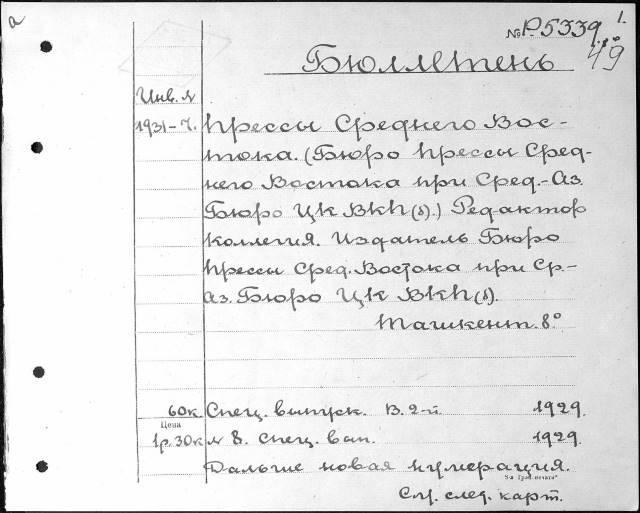 а
№ Р.5339. 1.
49
Бюллетень
Инв. №
1931-7. Прессы Среднего Вос-
тока. (Бюро Прессы Сред-
него Востока при Сред.-Аз.
Бюро ЦК ВКП(б).) Редактор
коллегия. Издатель Бюро
Прессы Сред. Востока при Ср.-
аз. Бюро ЦК ВКП(б).
Ташкент. 8°
60к. Спец. выпуск. В. 2-й. 1929.
Цена
1р.30к. № 8. Спец. вып. 1929.
Дальше новая нумерация.
См. след. карт.